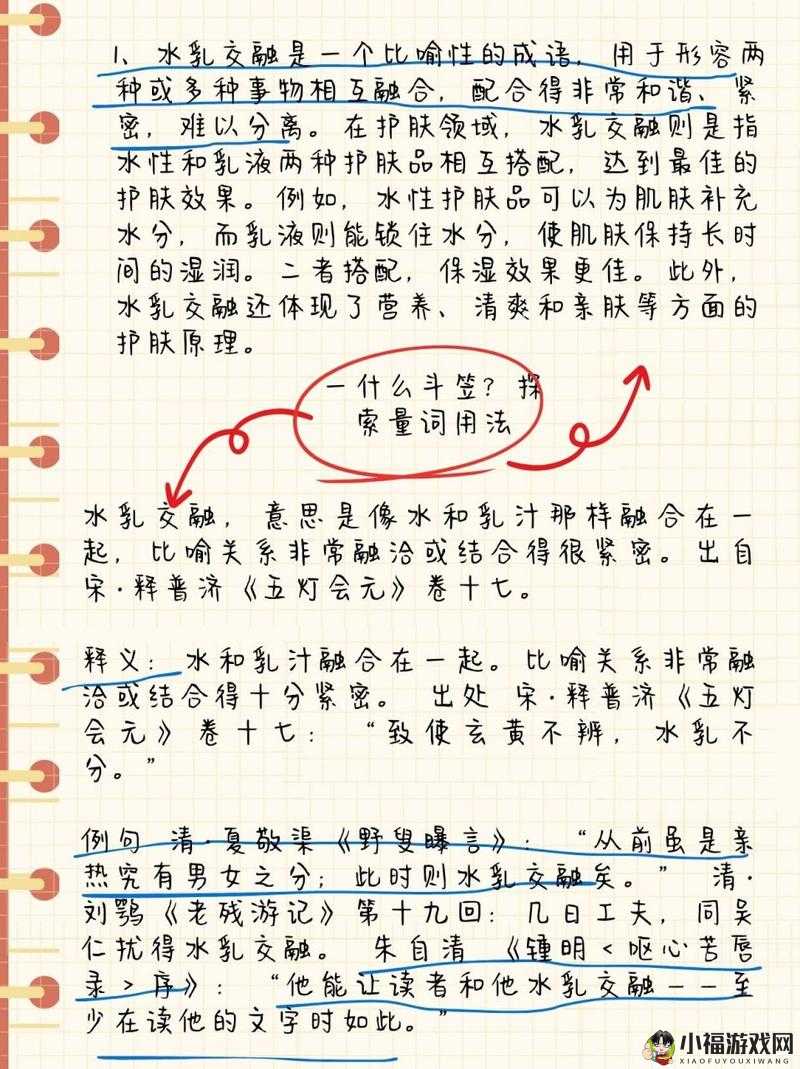 1、水乳交融是一个比喻性的成语，用于形容两
种或多种事物相互融合，配合得非常和谐、紧
密，难以分离。在护肤领域，水乳交融则是指
水性和乳液两种护肤品相互搭配，达到最佳的
护肤效果。例如，水性护肤品可以为肌肤补充
水分，而乳液则能锁住水分，使肌肤保持长时
间的湿润。二者搭配，保湿效果更佳。此外，
水乳交融还体现了营养、清爽和亲肤等方面的
护肤原理。
一什么斗笠？探
索量词用法
水乳交融，意思是像水和乳汁那样融合在一
起，比喻关系非常融洽或结合得很紧密。出自
宋·释普济《五灯会元》卷十七。
释义：水和乳汁融合在一起。比喻关系非常融
洽或结合得十分紧密。 出处 宋·释普济《五灯
会元》卷十七：“致使玄黄不辨，水乳不
分。”
例句 清·夏敬渠《野叟曝言》：“从前虽是亲
热究有男女之分；此时则水乳交融矣。” 清·
刘鹗《老残游记》第十九回：几日工夫，同吴
仁扰得水乳交融。 朱自清 《锺明<呕心苦唇
录>序》：“他能让读者和他水乳交融——至
少在读他的文字时如此。”
小福游戏网
XIAOFUYOUXIWANG